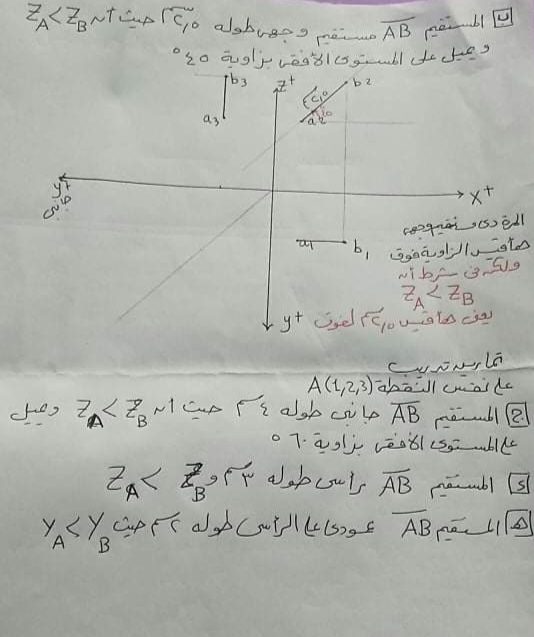 ب المستقيم AB مستقيم وجهى طوله ٢,٥ سم حيث أنه Z_A < Z_B
ويميل على المستوى الأفقى بزاوية ٤٥°
b3
Z+
b2
٢,٥
a3
a2
y+
جانبى
X+
المرة دى مستقيم وجهى
هنقيس الزاوية فوق
a1
b1
ولكن فى شرط أنه
Z_A < Z_B
يعنى هنقيس ٢,٥ سم لفوق
y+
تمارين تدريب
على نفس النقطة A(1,2,3)
ج المستقيم AB جانبى طوله ٤ سم حيث أنه Z_A < Z_B ويميل
على المستوى الأفقى بزاوية ٦٠°
د المستقيم AB رأسى طوله ٣ سم و Z_A < Z_B
هـ المستقيم AB عمودى على الرأسى طوله ٢ سم حيث Y_A < Y_B